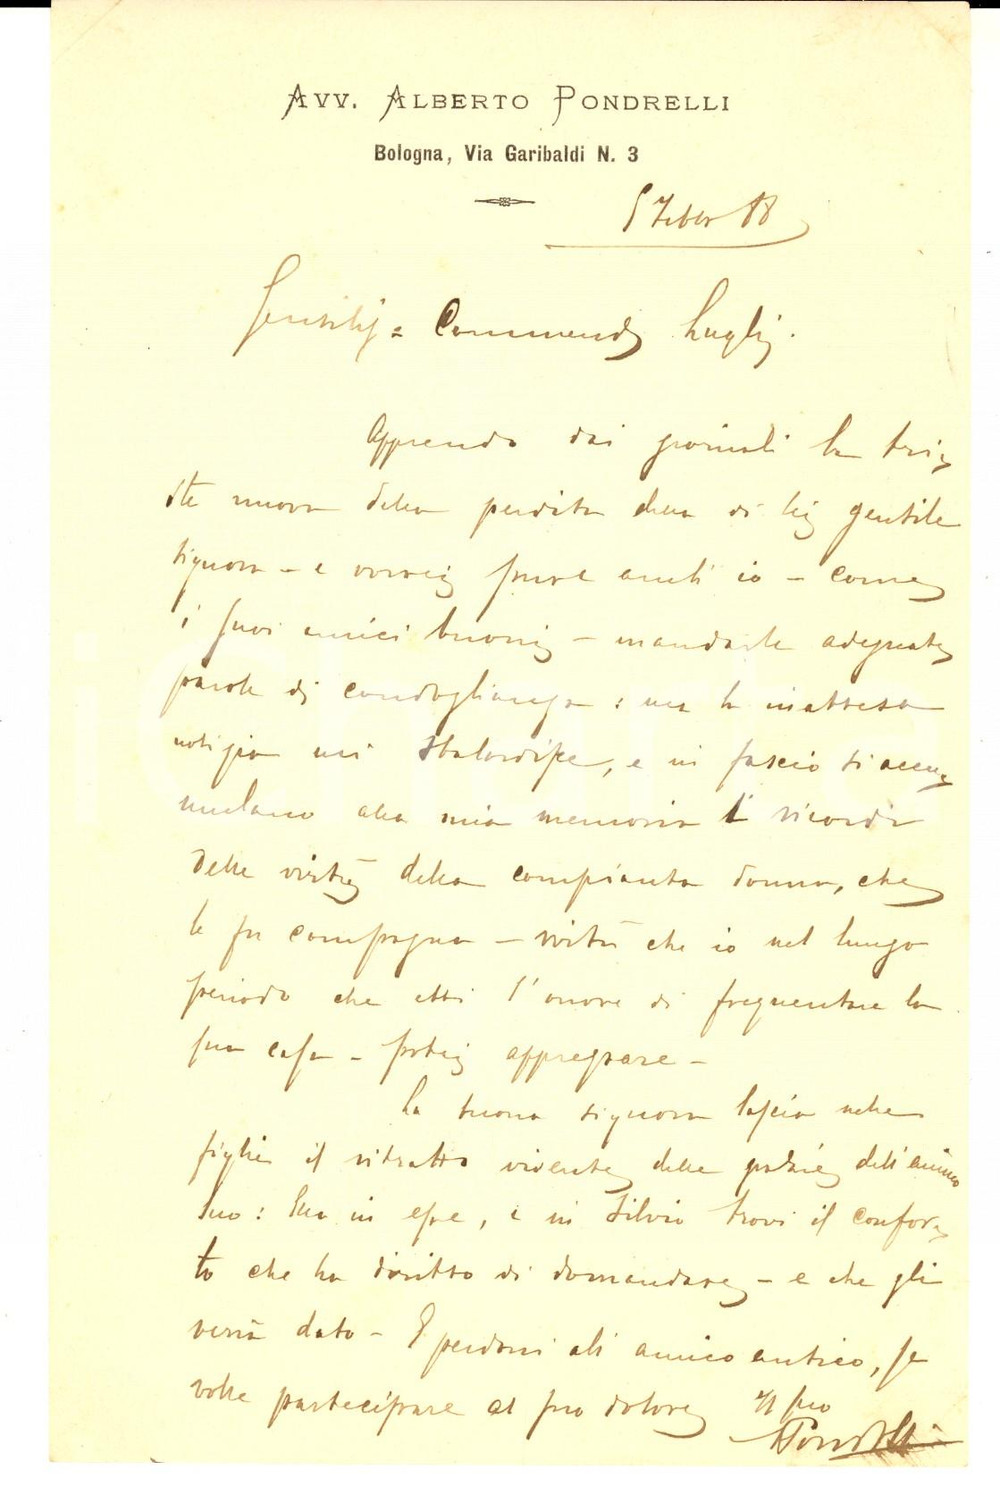 AVV. ALBERTO PONDRELLI
Bologna, Via Garibaldi N. 3
5 Febbr 88
Gentiliss. Commend. Lugli.
Apprendo dai giornali la tri-
ste nuova della perdita della di lei gentile
signora - e vorrei pure anch'io - come
i suoi amici buoni - mandarle adeguate
parole di condoglianza: ma la inattesa
notizia mi sbalordisce, e in fascio si accu-
mulano alla mia memoria i ricordi
delle virtù della compianta donna, che
le fu compagna - virtù che io nel lungo
periodo che ebbi l'onore di frequentare la
sua casa - potei apprezzare -
La buona signora lascia nelle
figlie il ritratto vivente delle grazie dell'animo
suo: Ella in esse, e in Silvio trovi il confor-
to che ha diritto di domandare - e che gli
verrà dato - E perdoni all'amico antico, se
volle partecipare al suo dolore Il suo
APondrelli